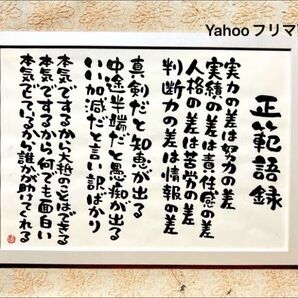 Yahooフリマ
正範語録
実力の差は努力の差
実績の差は責任感の差
人格の差は苦労の差
判断力の差は情報の差
真剣だと知恵が出る
中途半端だと愚痴が出る
いい加減だと言い訳ばかり
本気でするから大抵のことはできる
本気でするから何でも面白い
本気でしているから誰かが助けてくれる